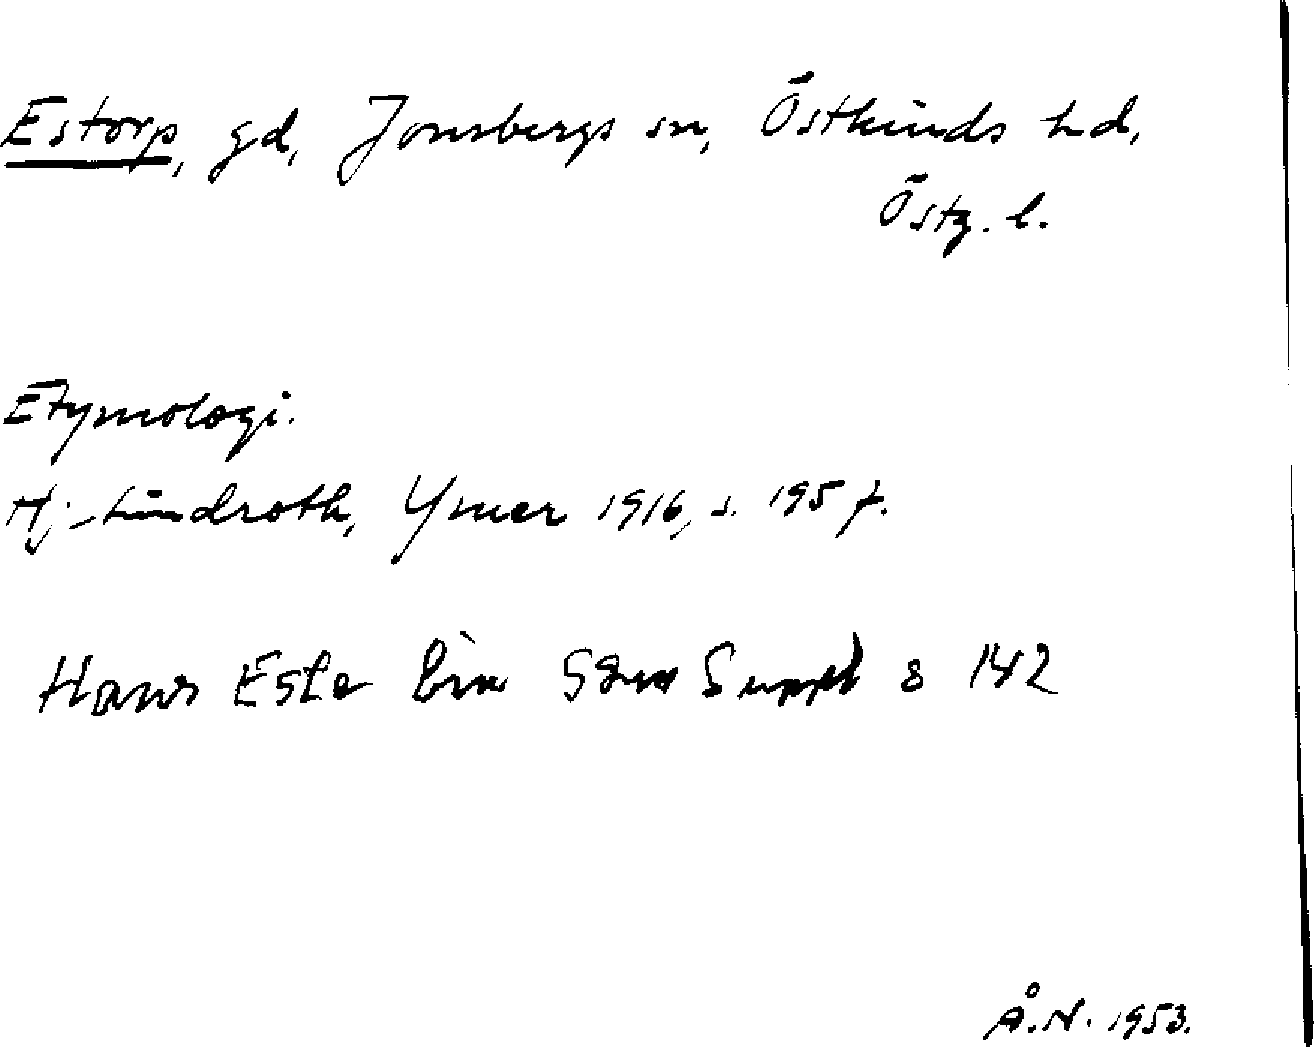 Estorp, gd, Jonsbergs sn, Östkinds hd,
Östg. l.
Etymologi.
Hj. Lindroth, Ymer 1916, s. 195 f.
Hans Este Suppl s 142
Å.N. 1953.